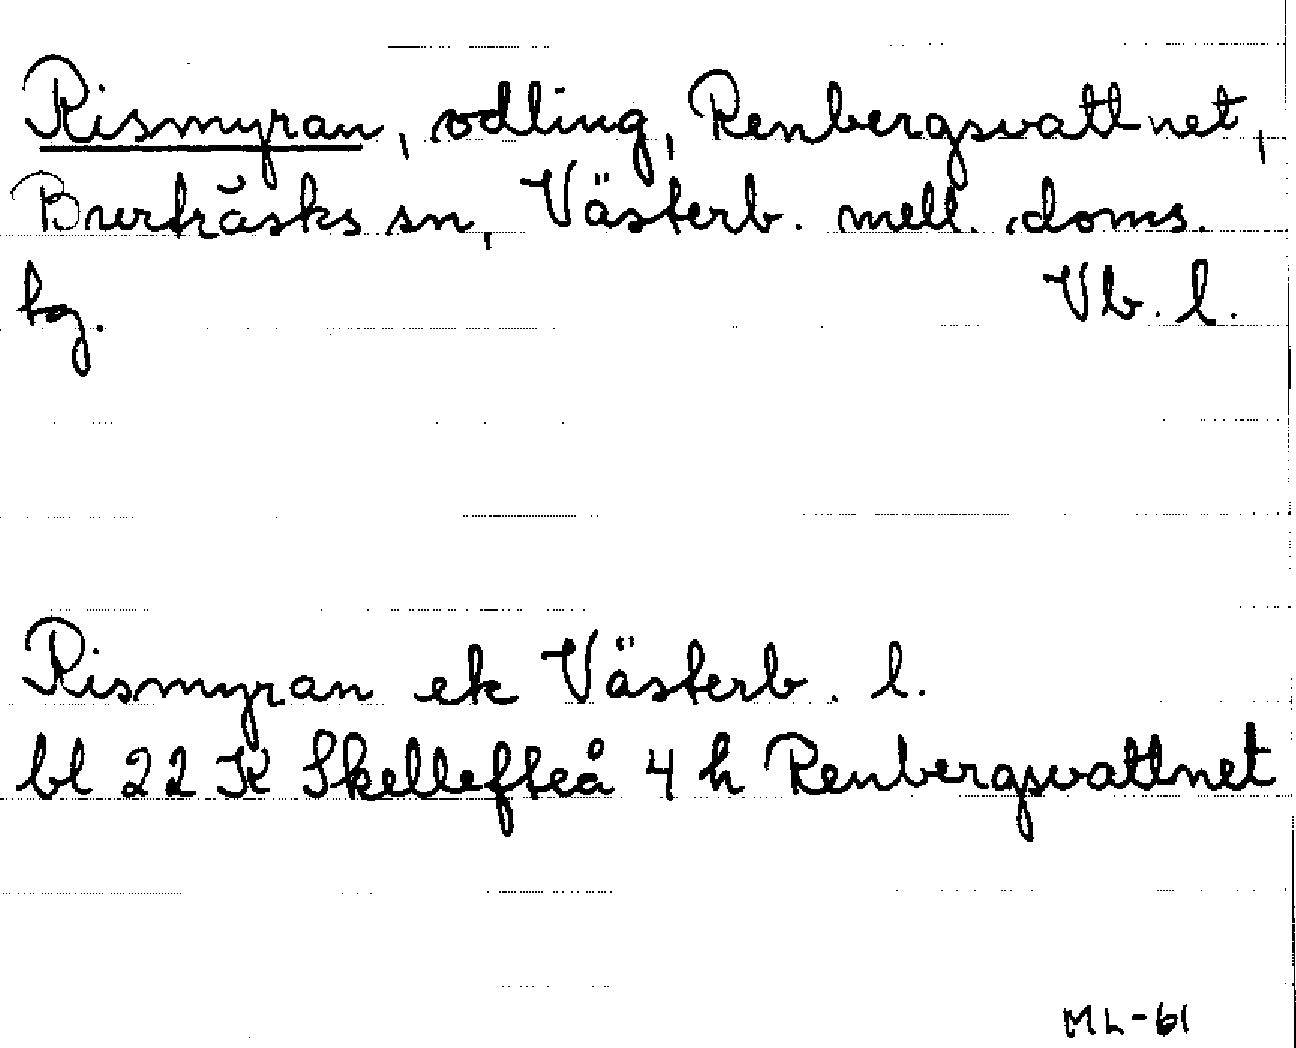 Rismyran, odling, Renbergsvattnet,
Burträsks sn, Västerb. mell. doms.
tg. Vb. l.
Rismyran ek Västerb. l.
bl 22 K Skellefteå 4 h Renbergsvattnet
ML-61